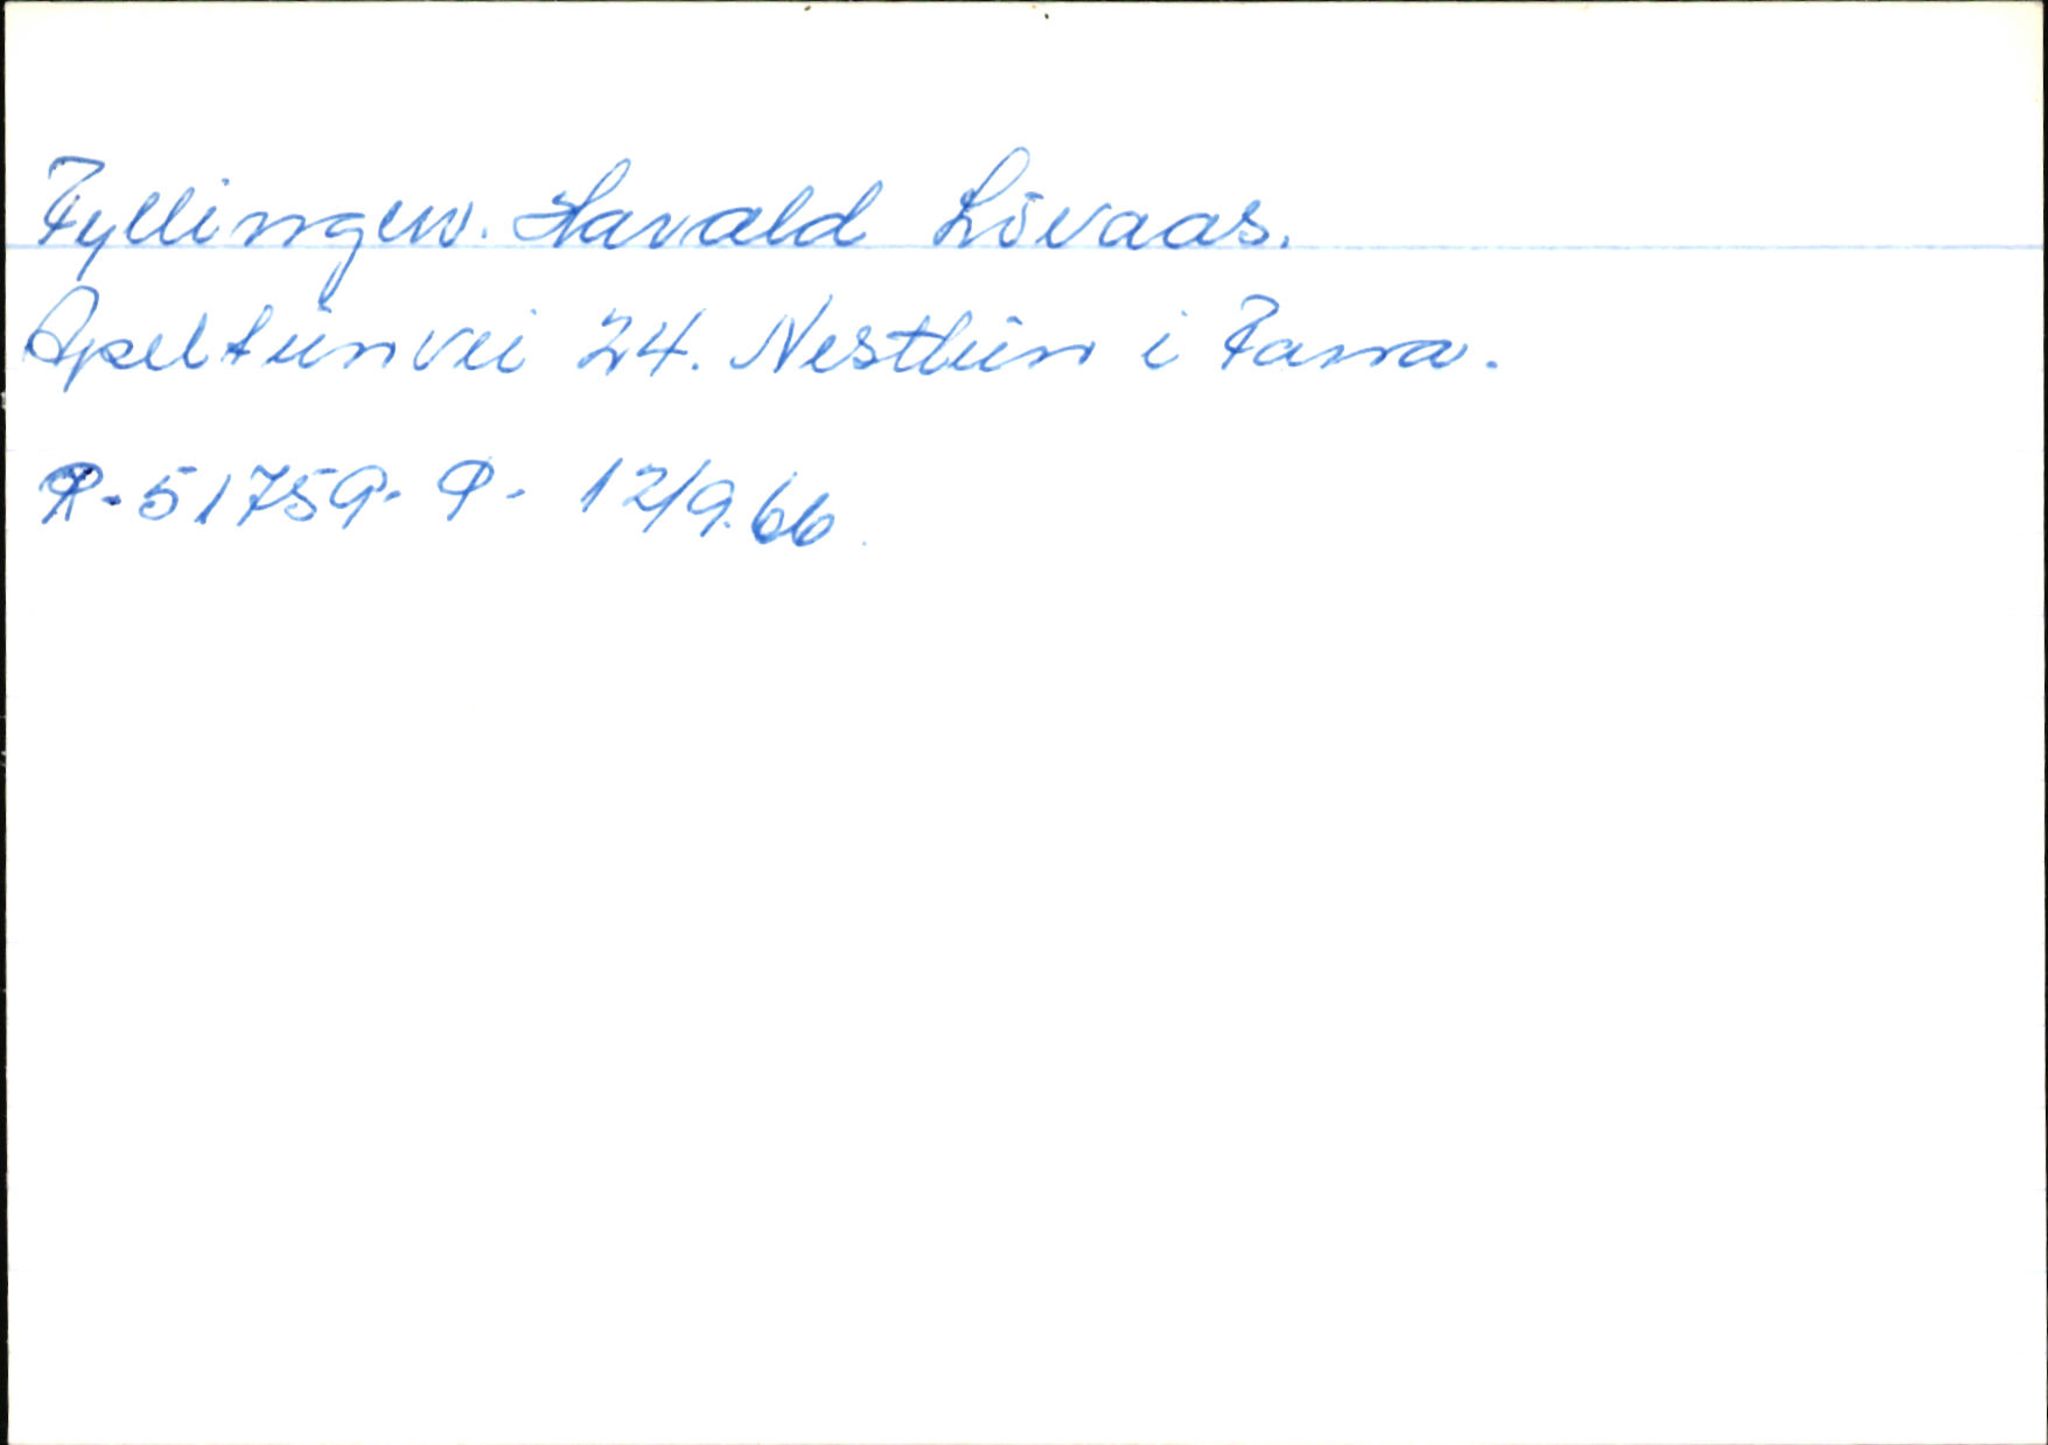 Fyllingen. Harald Lövaas.
Apeltunvei 24. Nesttun i Fana.
R-51759. P. 12/9.66